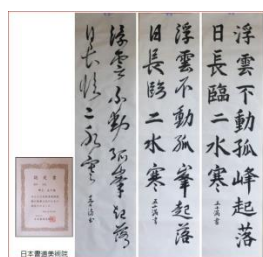 浮雲不動孤峰起落
日長臨二水寒
浮雲不動孤峯起落
日長臨二水寒
浮雲不動孤峯起落
日長臨二水寒
日本書道美術院